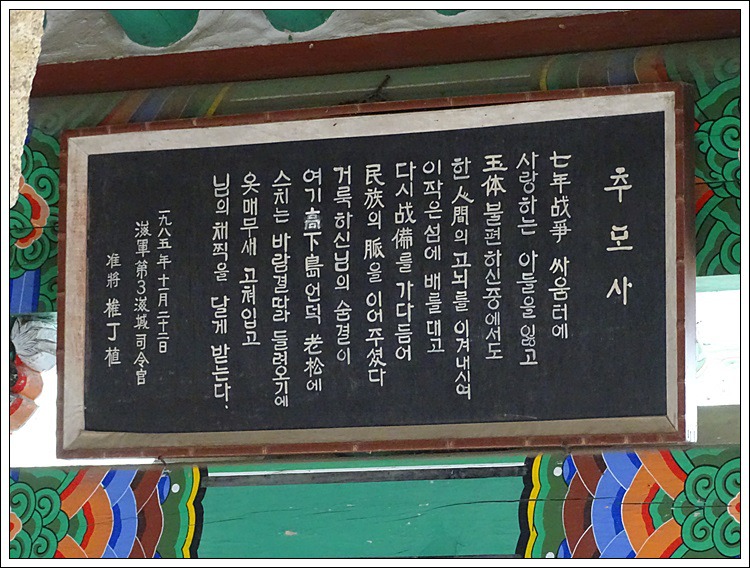 추모사
七年战爭 싸움터에
사랑하는 아들을 잃고
玉体 불편하신중에서도
한 人間의 고뇌를 이겨내시여
이작은섬에 배를 대고
다시 战備를 가다듬어
民族의 脈을 이어주셨다
거룩하신님의 숨결이
여기 高下島 언덕 老松에
스치는 바람결따라 들려오기에
옷매무새 고쳐입고
님의 채찍을 달게 받는다.
一九八五年十一月二十二日
海軍第3海域司令官
准將 權丁植